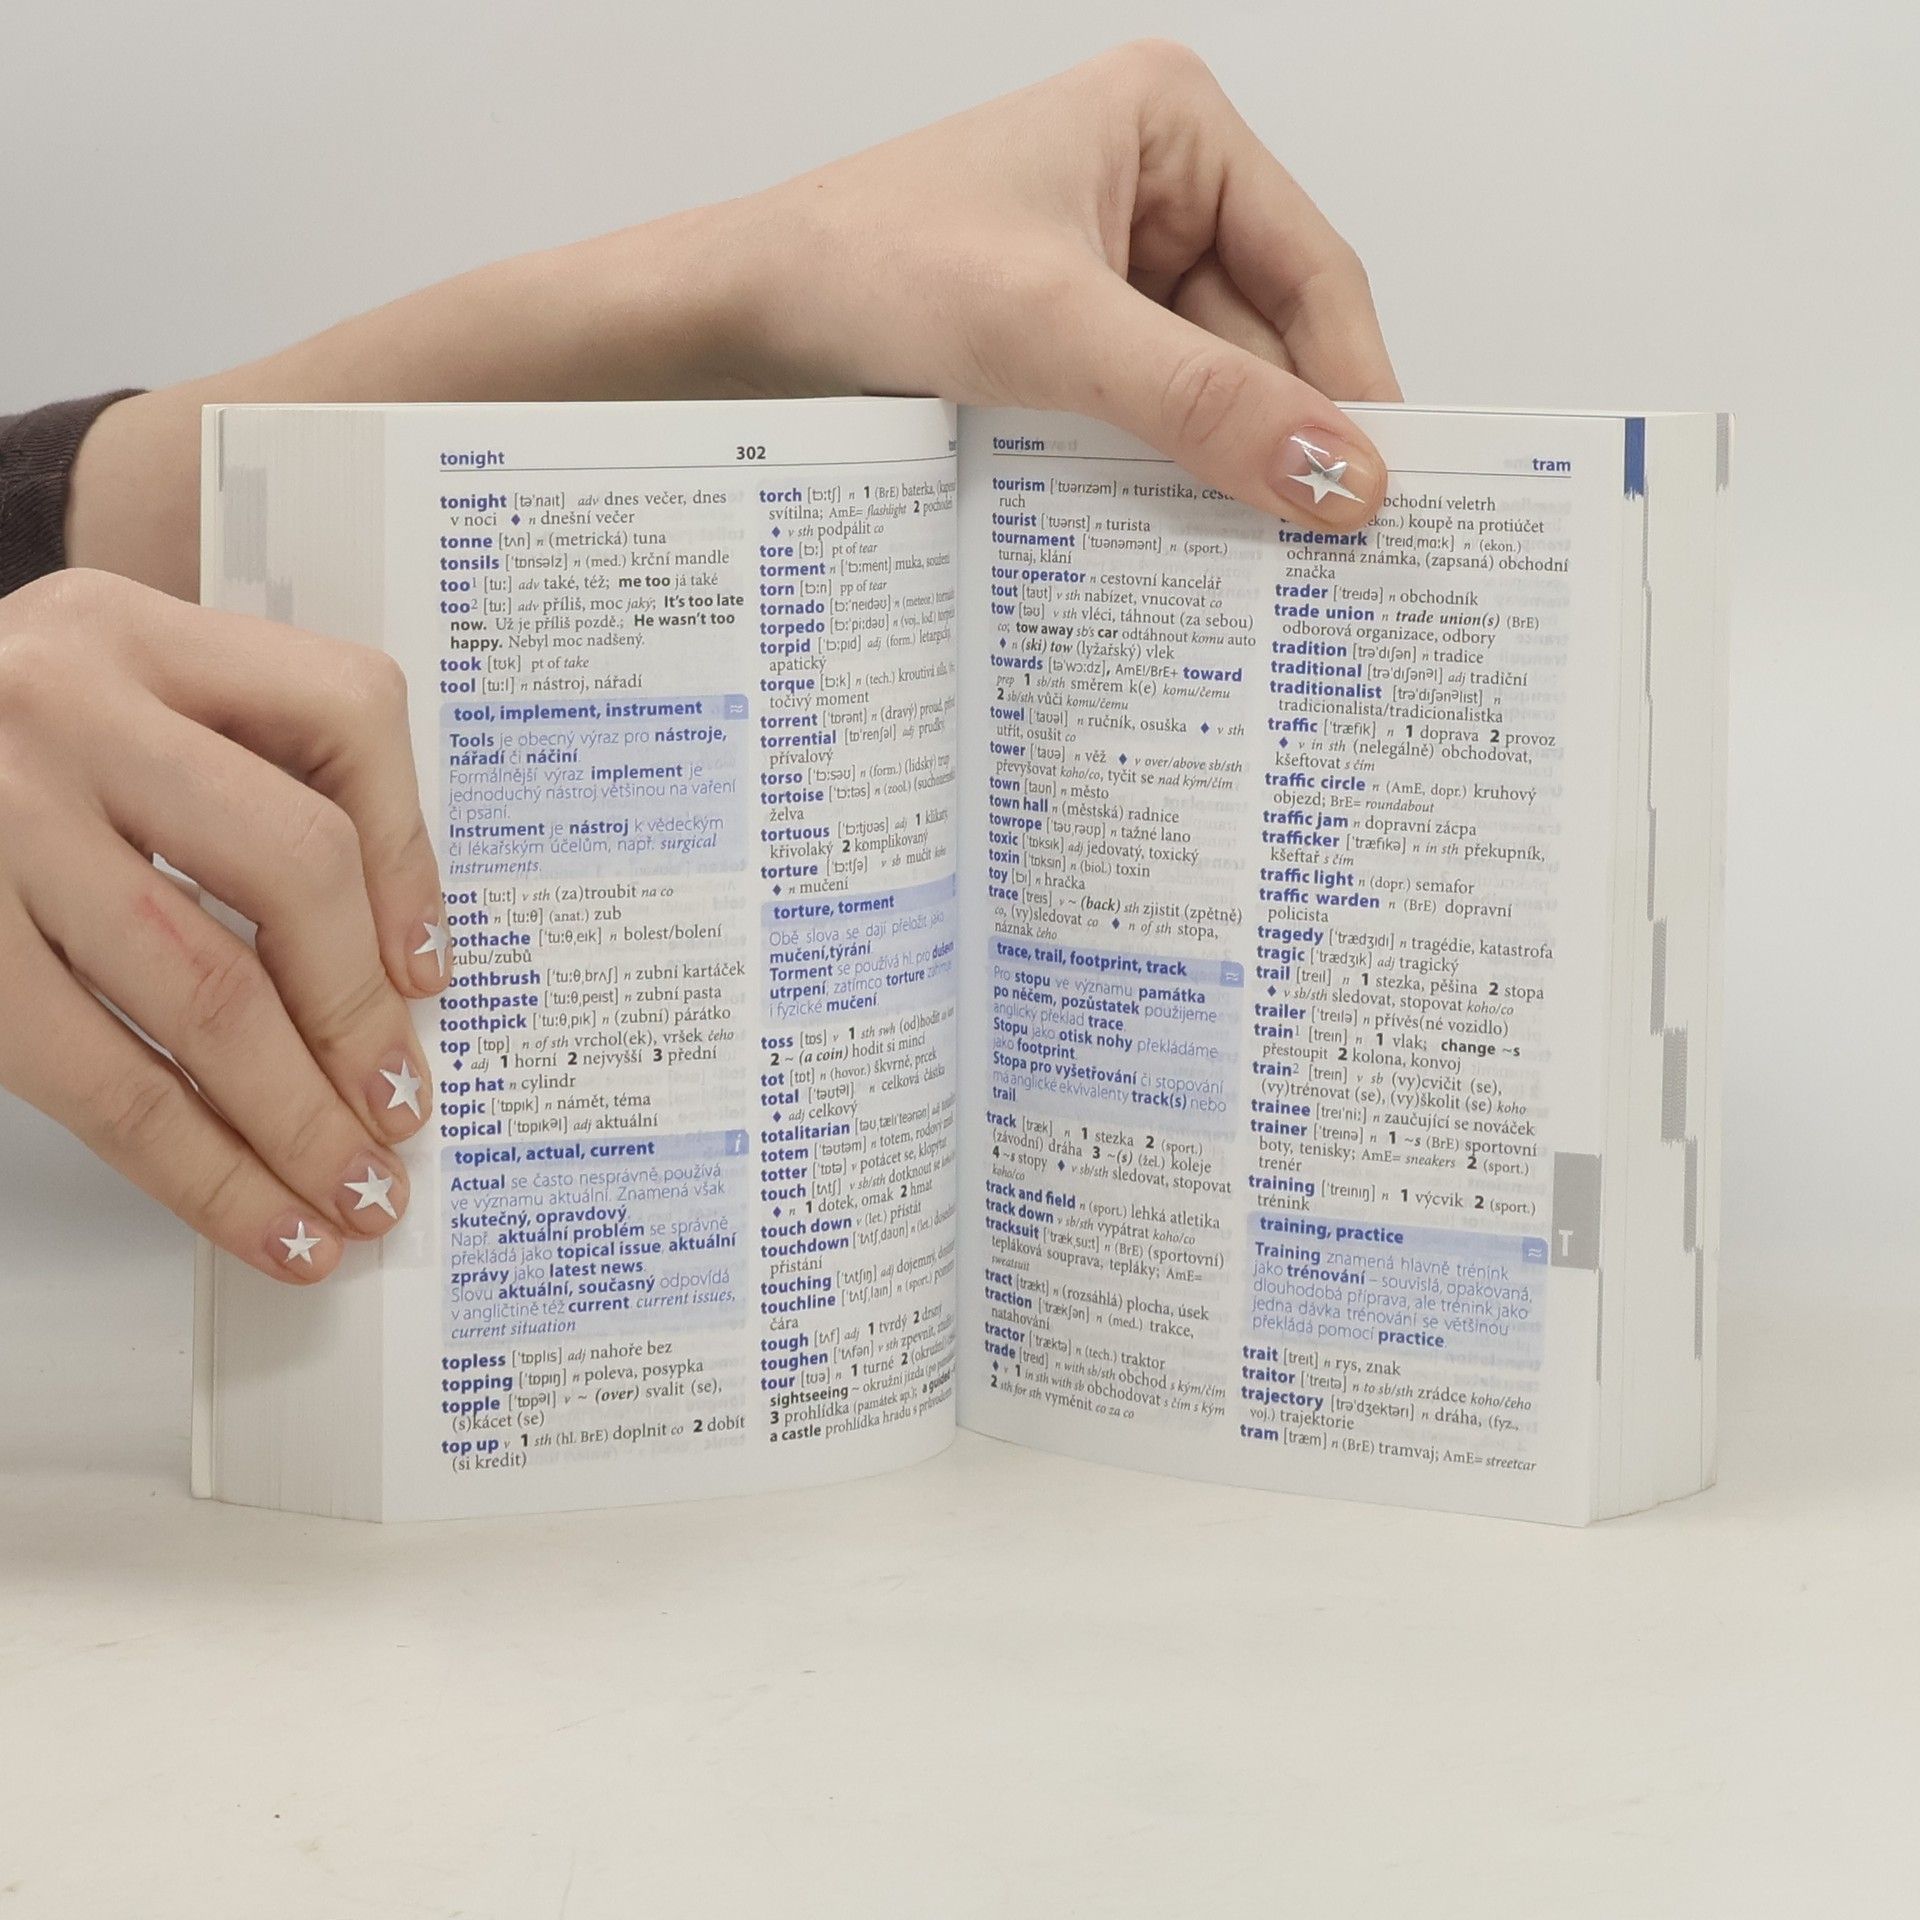 tonight
302
tonight [təˈnaɪt] adv dnes večer, dnes
v noci ♦ n dnešní večer
tonne [tʌn] n (metrická) tuna
tonsils [ˈtɒnsəlz] n (med.) krční mandle
too¹ [tuː] adv také, též; me too já také
too² [tuː] adv příliš, moc jaký; It's too late
now. Už je příliš pozdě.; He wasn't too
happy. Nebyl moc nadšený.
took [tʊk] pt of take
tool [tuːl] n nástroj, nářadí
tool, implement, instrument ≈
Tools je obecný výraz pro nástroje,
nářadí či náčiní.
Formálnější výraz implement je
jednoduchý nástroj většinou na vaření
či psaní.
Instrument je nástroj k vědeckým
či lékařským účelům, např. surgical
instruments.
toot [tuːt] v sth (za)troubit na co
ooth n [tuːθ] (anat.) zub
oothache [ˈtuːθˌeɪk] n bolest/bolení
zubu/zubů
oothbrush [ˈtuːθˌbrʌʃ] n zubní kartáček
toothpaste [ˈtuːθˌpeɪst] n zubní pasta
toothpick [ˈtuːθˌpɪk] n (zubní) párátko
top [tɒp] n of sth vrchol(ek), vršek čeho
♦ adj 1 horní 2 nejvyšší 3 přední
top hat n cylindr
topic [ˈtɒpɪk] n námět, téma
topical [ˈtɒpɪkᵊl] adj aktuální
topical, actual, current i
Actual se často nesprávně používá
ve významu aktuální. Znamená však
skutečný, opravdový.
Např. aktuální problém se správně
překládá jako topical issue, aktuální
zprávy jako latest news.
Slovu aktuální, současný odpovídá
v angličtině též current. current issues,
current situation
topless [ˈtɒplɪs] adj nahoře bez
topping [ˈtɒpɪŋ] n poleva, posypka
topple [ˈtɒpᵊl] v ~ (over) svalit (se),
(s)kácet (se)
top up v 1 sth (hl. BrE) doplnit co 2 dobít
(si kredit)
torch [tɔːtʃ] n 1 (BrE) baterka,
svítilna; AmE= flashlight 2
♦ v sth podpálit co
tore [tɔː] pt of tear
torment n [ˈtɔːment] muka, soužení
torn [tɔːn] pp of tear
tornado [tɔːˈneɪdəʊ] n (meteor.)
torpedo [tɔːˈpiːdəʊ] n (voj., loď.)
torpid [ˈtɔːpɪd] adj (form.) letargický,
apatický
torque [tɔːk] n (tech.) kroutivá síla,
točivý moment
torrent [ˈtɒrənt] n (dravý) proud,
torrential [tɒˈrenʃəl] adj prudký,
přívalový
torso [ˈtɔːsəʊ] n (form.) (lidský) trup
tortoise [ˈtɔːtəs] n (zool.)
želva
tortuous [ˈtɔːtjʊəs] adj 1 klikatý,
křivolaký 2 komplikovaný
torture [ˈtɔːtʃə] v sb mučit koho
♦ n mučení
torture, torment
Obě slova se dají přeložit jako
mučení, týrání.
Torment se používá hl. pro
utrpení, zatímco torture
i fyzické mučení.
toss [tɒs] v 1 sth swh (od)hodit
2 ~ (a coin) hodit si mincí
tot [tɒt] n (hovor.) škvrně, prcek
total [ˈtəʊtᵊl] n celková částka
♦ adj celkový
totalitarian [təʊˌtælɪˈteərɪən] adj
totem [ˈtəʊtəm] n totem, rodový
totter [ˈtɒtə] v potácet se, klopýtat
touch [tʌtʃ] v sb/sth dotknout se
♦ n 1 dotek, omak 2 hmat
touch down v (let.) přistát
touchdown [ˈtʌtʃˌdaʊn] n (let.)
přistání
touching [ˈtʌtʃɪŋ] adj dojemný,
touchline [ˈtʌtʃˌlaɪn] n (sport.)
čára
tough [tʌf] adj 1 tvrdý 2 drsný
toughen [ˈtʌfən] v sth zpevnit,
tour [tʊə] n 1 turné 2
sightseeing ~ okružní jízda
3 prohlídka (památek ap.);
a castle prohlídka hradu s průvodcem
tourism
tram
tourism [ˈtʊərɪzəm] n turistika,
ruch
tourist [ˈtʊərɪst] n turista
tournament [ˈtʊənəmənt] n (sport.)
turnaj, klání
tour operator n cestovní kancelář
tout [taʊt] v sth nabízet, vnucovat co
tow [təʊ] v sth vléci, táhnout (za sebou)
co; tow away sb's car odtáhnout komu auto
♦ n (ski) tow (lyžařský) vlek
towards [təˈwɔːdz], AmE!/BrE+ toward
prep 1 sb/sth směrem k(e) komu/čemu
2 sb/sth vůči komu/čemu
towel [ˈtaʊəl] n ručník, osuška ♦ v sth
utřít, osušit co
tower [ˈtaʊə] n věž ♦ v over/above sb/sth
převyšovat koho/co, tyčit se nad kým/čím
town [taʊn] n město
town hall n (městská) radnice
towrope [ˈtəʊˌrəʊp] n tažné lano
toxic [ˈtɒksɪk] adj jedovatý, toxický
toxin [ˈtɒksɪn] n (biol.) toxin
toy [tɔɪ] n hračka
trace [treɪs] v ~ (back) sth zjistit (zpětně)
co, (vy)sledovat co ♦ n of sth stopa,
náznak čeho
trace, trail, footprint, track ≈
Pro stopu ve významu památka
po něčem, pozůstatek použijeme
anglický překlad trace.
Stopu jako otisk nohy překládáme
jako footprint.
Stopa pro vyšetřování či stopování
má anglické ekvivalenty track(s) nebo
trail.
track [træk] n 1 stezka 2 (sport.)
(závodní) dráha 3 ~(s) (žel.) koleje
4 ~s stopy ♦ v sb/sth sledovat, stopovat
koho/co
track and field n (sport.) lehká atletika
track down v sb/sth vypátrat koho/co
tracksuit [ˈtrækˌsuːt] n (BrE) (sportovní)
tepláková souprava, tepláky; AmE=
sweatsuit
tract [trækt] n (rozsáhlá) plocha, úsek
traction [ˈtrækʃən] n (med.) trakce,
natahování
tractor [ˈtræktə] n (tech.) traktor
trade [treɪd] n with sb/sth obchod s kým/čím
♦ v 1 in sth with sb obchodovat s čím s kým
2 sth for sth vyměnit co za co
bchodní veletrh
ekon.) koupě na protiúčet
trademark [ˈtreɪdˌmɑːk] n (ekon.)
ochranná známka, (zapsaná) obchodní
značka
trader [ˈtreɪdə] n obchodník
trade union n trade union(s) (BrE)
odborová organizace, odbory
tradition [trəˈdɪʃən] n tradice
traditional [trəˈdɪʃənᵊl] adj tradiční
traditionalist [trəˈdɪʃənᵊlɪst] n
tradicionalista/tradicionalistka
traffic [ˈtræfɪk] n 1 doprava 2 provoz
♦ v in sth (nelegálně) obchodovat,
kšeftovat s čím
traffic circle n (AmE, dopr.) kruhový
objezd; BrE= roundabout
traffic jam n dopravní zácpa
trafficker [ˈtræfɪkə] n in sth překupník,
kšeftař s čím
traffic light n (dopr.) semafor
traffic warden n (BrE) dopravní
policista
tragedy [ˈtrædʒɪdɪ] n tragédie, katastrofa
tragic [ˈtrædʒɪk] adj tragický
trail [treɪl] n 1 stezka, pěšina 2 stopa
♦ v sb/sth sledovat, stopovat koho/co
trailer [ˈtreɪlə] n přívěs(né vozidlo)
train¹ [treɪn] n 1 vlak; change ~s
přestoupit 2 kolona, konvoj
train² [treɪn] v sb (vy)cvičit (se),
(vy)trénovat (se), (vy)školit (se) koho
trainee [treɪˈniː] n zaučující se nováček
trainer [ˈtreɪnə] n 1 ~s (BrE) sportovní
boty, tenisky; AmE= sneakers 2 (sport.)
trenér
training [ˈtreɪnɪŋ] n 1 výcvik 2 (sport.)
trénink
training, practice ≈
Training znamená hlavně trénink
jako trénování – souvislá, opakovaná,
dlouhodobá příprava, ale trénink jako
jedna dávka trénování se většinou
překládá pomocí practice.
trait [treɪt] n rys, znak
traitor [ˈtreɪtə] n to sb/sth zrádce koho/čeho
trajectory [trəˈdʒektərɪ] n dráha, (fyz.,
voj.) trajektorie
tram [træm] n (BrE) tramvaj; AmE= streetcar
T